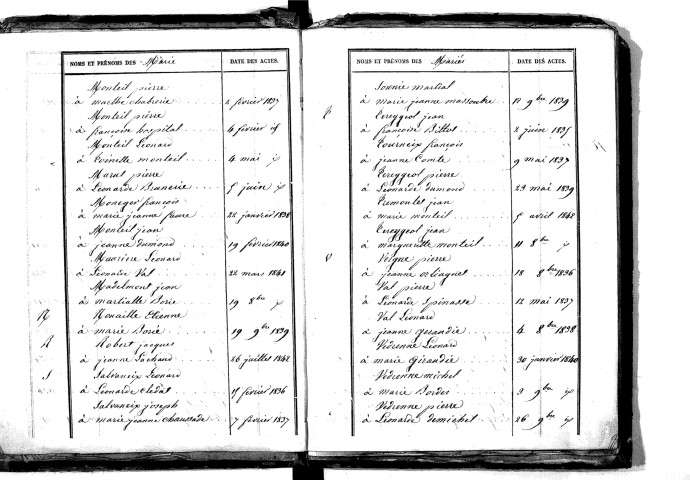 NOMS ET PRÉNOMS DES Mariés DATE DES ACTES.
Monteil pierre
à marthe chabrerie 2 février 1837
Monteil pierre
à françoise hospital 4 février id
Monteil Léonard
à Toinette monteil 4 mai id
Maret pierre
à Léonarde Brunerie 5 juin id
Moneger françois
à marie jeanne faure 22 janvier 1838
Monteil jean
à jeanne dumond 19 février 1840
Maurière Léonard
à Léonarde Val 22 mars 1841
Madelmont jean
à martialle Borie 19 8bre id
R Rouaille Etienne
à marie Borie 19 9bre 1839
R Robert jacques
à jeanne Pachaud 26 juillet 1842
S Salvaneix Léonard
à Léonarde Cledat 15 février 1836
Salvaneix joseph
à marie jeanne chaussade 7 février 1837
NOMS ET PRÉNOMS DES Mariés DATE DES ACTES.
Sounie martial
à marie jeanne massoubre 10 9bre 1839
T Tereygeol jean
à françoise Billot 2 juin 1835
Tourneix françois
à jeanne Comte 9 mai 1837
Tereygeol pierre
à Léonarde dumond 23 mai 1839
Tremoulet jean
à marie monteil 5 avril 1842
Tereygeol jean
à marguerite monteil 11 8bre id
V Veigne pierre
à jeanne 18 8bre 1836
Val pierre
à Léonarde Spinasse 12 mai 1837
Val Léonard
à jeanne Girandie 4 8bre 1838
Vedrenne Léonard
à marie Girandie 30 janvier 1840
Vedrenne michel
à marie Bordes 3 9bre id
Vedrenne pierre
à Léonarde demichel 26 9bre id